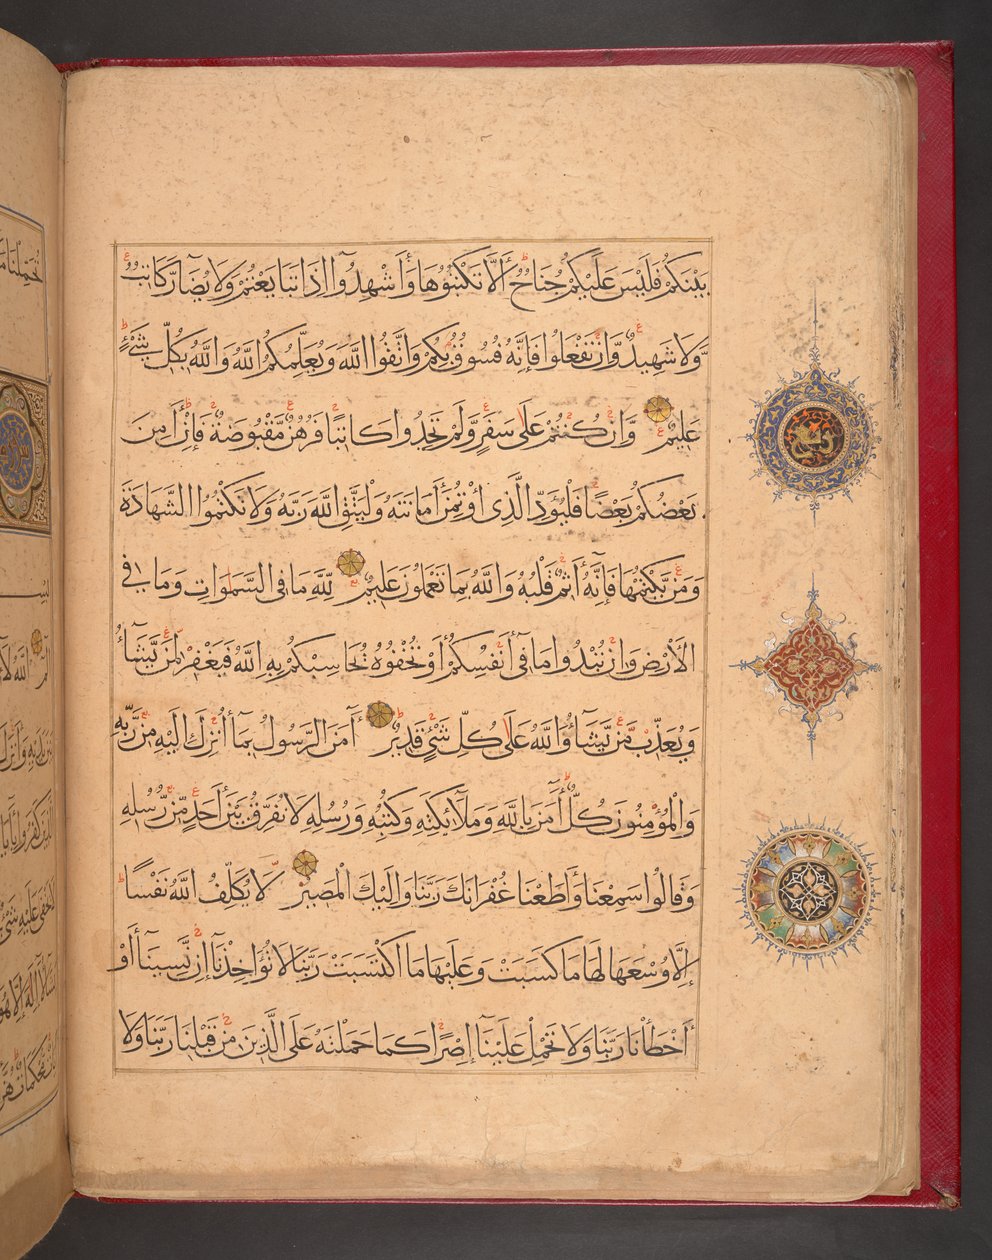 بَيْنَكُمْ فَلَيْسَ عَلَيْكُمْ جُنَاحٌ أَلَّا تَكْتُبُوهَا وَأَشْهِدُوٓا إِذَا تَبَايَعْتُمْ وَلَا يُضَارَّ كَاتِبٌ
وَّلَا شَهِيدٌ وَّإِنْ تَفْعَلُوا فَإِنَّهُ فُسُوقٌ بِكُمْ وَاتَّقُوا اللَّهَ وَيُعَلِّمُكُمُ اللَّهُ وَاللَّهُ بِكُلِّ شَيْءٍ
عَلِيمٌ وَّإِنْ كُنْتُمْ عَلَى سَفَرٍ وَّلَمْ تَجِدُوا كَاتِبًا فَرُهُنٌ مَّقْبُوضَةٌ فَإِنْ أَمِنَ
بَعْضُكُمْ بَعْضًا فَلْيُؤَدِّ الَّذِى اؤْتُمِنَ أَمَانَتَهُ وَلْيَتَّقِ اللَّهَ رَبَّهُ وَلَا تَكْتُمُوا الشَّهَادَةَ
وَمَنْ يَّكْتُمْهَا فَإِنَّهُٓ أَثِمٌ قَلْبُهُ وَاللَّهُ بِمَا تَعْمَلُونَ عَلِيمٌ لِلَّهِ مَا فِى السَّمَوَاتِ وَمَا فِى
الْأَرْضِ وَإِنْ تُبْدُوا مَا فِىٓ أَنْفُسِكُمْ أَوْ تُخْفُوهُ يُحَاسِبْكُمْ بِهِ اللَّهُ فَيَغْفِرُ لِمَنْ يَّشَآءُ
وَيُعَذِّبُ مَنْ يَّشَآءُ وَاللَّهُ عَلَى كُلِّ شَيْءٍ قَدِيرٌ آمَنَ الرَّسُولُ بِمَآ أُنْزِلَ إِلَيْهِ مِنْ رَّبِّهِ
وَالْمُؤْمِنُونَ كُلٌّ آمَنَ بِاللَّهِ وَمَلَآئِكَتِهِ وَكُتُبِهِ وَرُسُلِهِ لَا نُفَرِّقُ بَيْنَ أَحَدٍ مِّنْ رُّسُلِهِ
وَقَالُوا سَمِعْنَا وَأَطَعْنَا غُفْرَانَكَ رَبَّنَا وَإِلَيْكَ الْمَصِيرُ لَا يُكَلِّفُ اللَّهُ نَفْسًا
إِلَّا وُسْعَهَا لَهَا مَا كَسَبَتْ وَعَلَيْهَا مَا اكْتَسَبَتْ رَبَّنَا لَا تُؤَاخِذْنَآ إِنْ نَّسِينَآ أَوْ
أَخْطَأْنَا رَبَّنَا وَلَا تَحْمِلْ عَلَيْنَآ إِصْرًا كَمَا حَمَلْتَهُ عَلَى الَّذِينَ مِنْ قَبْلِنَا رَبَّنَا وَلَا